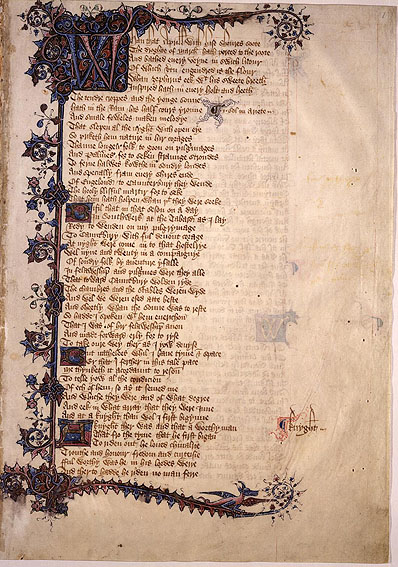 Whan that April with his shoures soote
The droghte of march hath perced to the roote
And bathed euery veyne in swich licour
Of which vertu engendred is the flour
Whan zephirus eek wt his sweete breeth
Inspired hath in euery holt and heeth
The tendre croppes and the yonge sonne
hath in the Ram his half cours yronne
And smale foweles maken melodye
That slepen al the nyght with open eye
So priketh hem nature in hir corages
Thanne longen folk to goon on pilgrymages
And palmeres for to seken straunge strondes
To ferne halwes kowthe in sondry londes
And specially fram euery shires ende
Of Engelond to Caunterbury they wende
The holy blisful martir for to seke
That hem hath holpen whan þt they were seeke
fil that in that seson on a day
In Southwerk at the Tabard as I lay
Redy to wenden on my pilgrymage
To Caunterbury with ful deuout corage
At nyght were come in to that hostelrye
Wel nyne and twenty in a compaignye
Of sondry folk by auenture yfalle
In felaweship and pilgrimes were they alle
That toward Caunterbury wolden ryde
The chambres and the stables weren wyde
And wel we weren esed atte beste
And shortly whan the sonne was to reste
So hadde I spoken wt hem euerychon
That I was of hir felaweship anon
And made forward erly for to ryse
To take oure wey ther as I yow deuyse
But natheless whil I haue tyme & space
Er that I ferther in this tale pace
Me thynketh it acordaunt to reson
To telle yow al the condicion
Of ech of hem, so as it semed me
And whiche they were and of what degree
And eek in what array that they were inne
And at a knyght than wol I first bigynne
A knyght ther was and that a worthy man
That fro the tyme that he first bigan
To riden out he loued chiualrie
Trouthe and honour fredom and curteisie
fful worthy was he in his lordes werre
And ther to hadde he riden no man ferre
Knyght